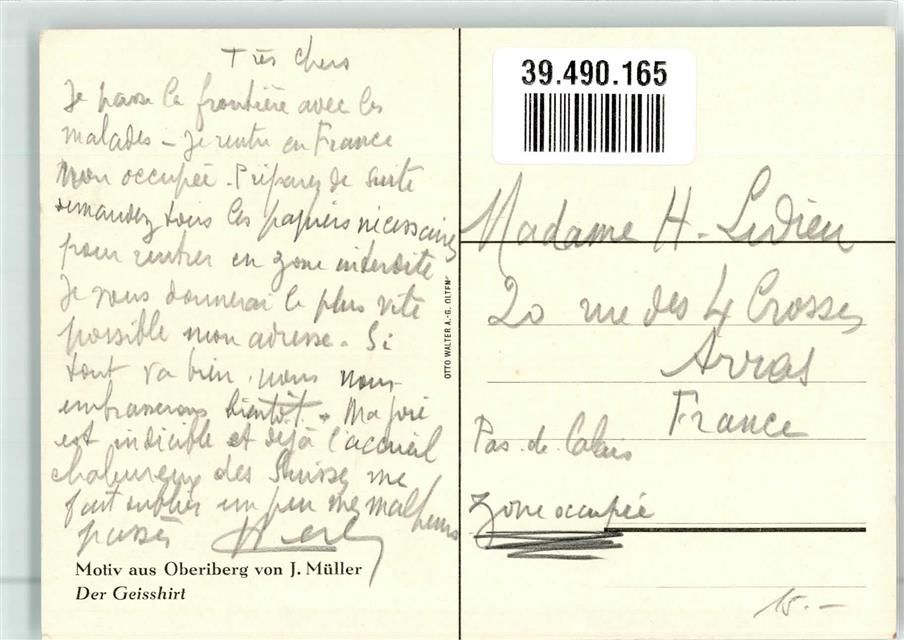 Très chers
Je passe la frontière avec les
malades - je rentre en France
non occupée. Préparez de suite
demandez tous les papiers nécessaires
pour rentrer en zone interdite
Je vous donnerai le plus vite
possible mon adresse. Si
tout va bien, nous nous
embrasserons bientôt. Ma joie
est indicible et déjà l'accueil
chaleureux des Suisses me
fait oublier un peu mes malheurs
passés
Motiv aus Oberiberg von J. Müller
Der Geisshirt
OTTO WALTER A.-G. OLTEN
39.490.165
Madame H. Ledieu
20 rue des 4 Crosses
Arras
France
Pas. de. Calais
zone occupée
15.-